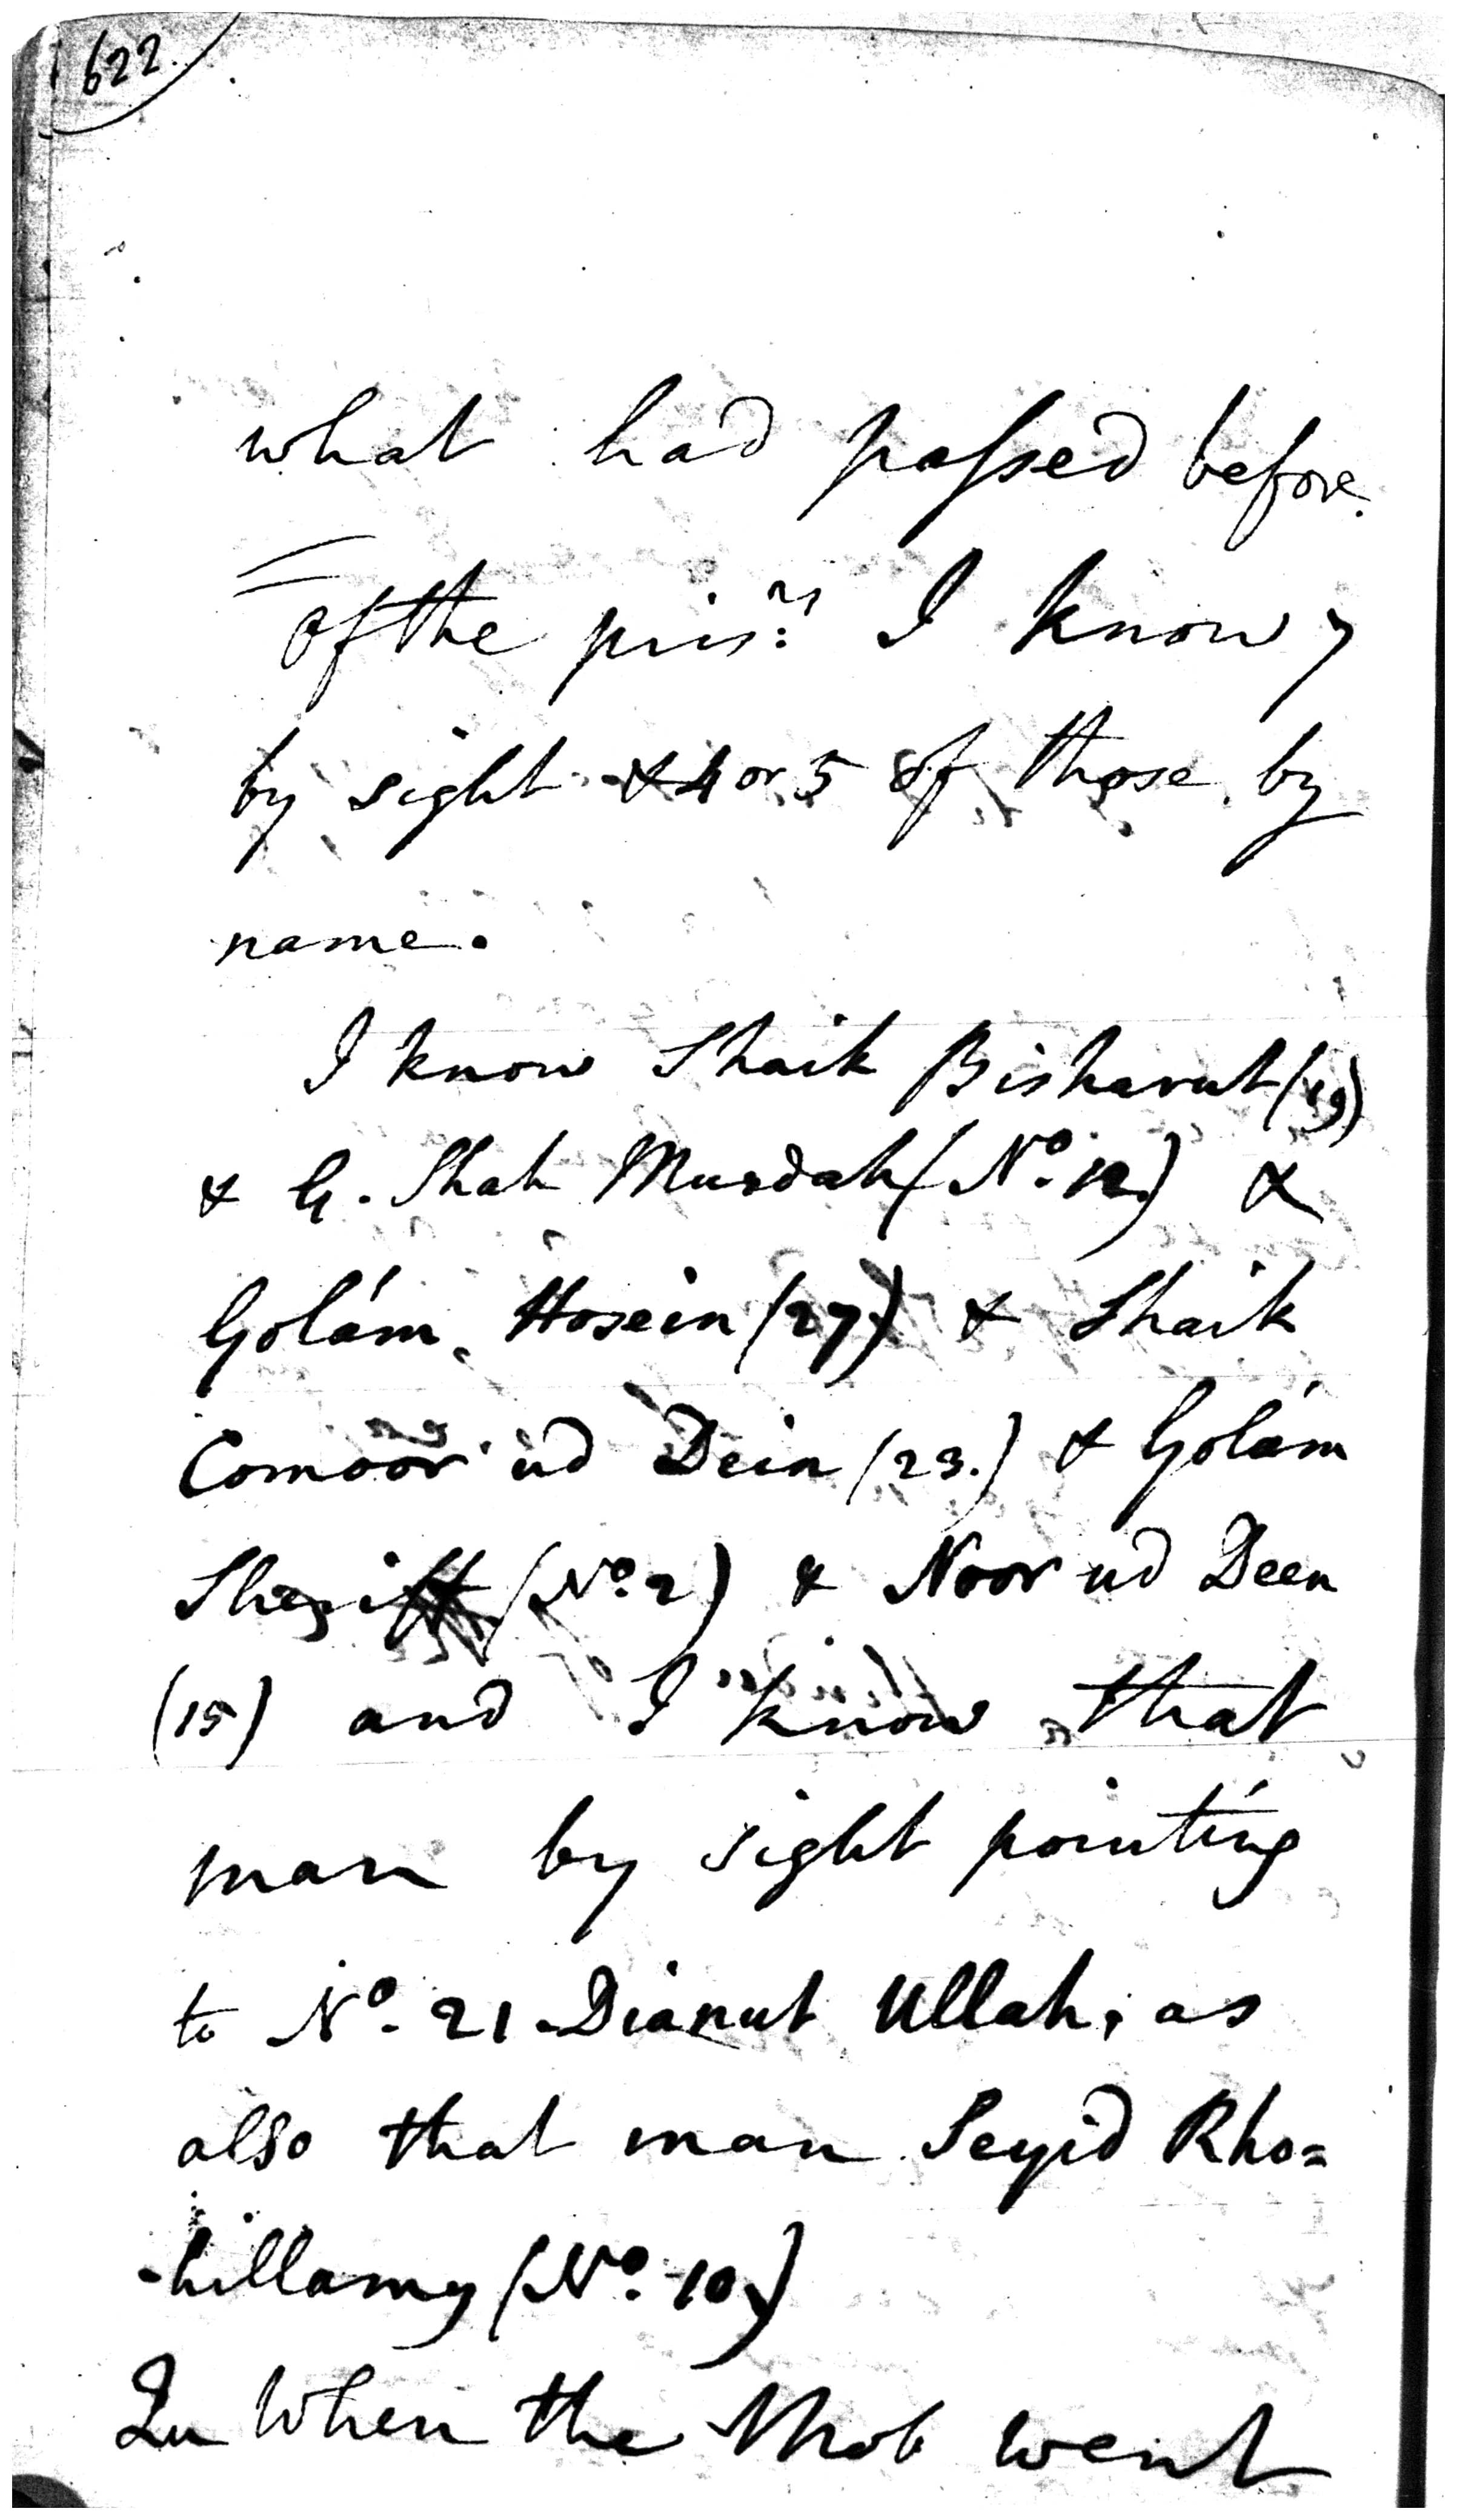 622
what had passed before.
Of the pris:rs I know 7
by sight & 4 or 5 of those by
name.
I know Shaik Bisharut (19)
& G. Shah Murdah (No. 12) &
Golám Hosein (27) & Shaik
Comoor ud Dein (23.) & Golám
Sheriff (No. 2) & Noor ud Deen
(15) and I know that
man by sight pointing
to No. 21 Dianut Ullah, as
also that man Seyid Rho=
-hillamy (No. 10.)
Qu When the Mob went